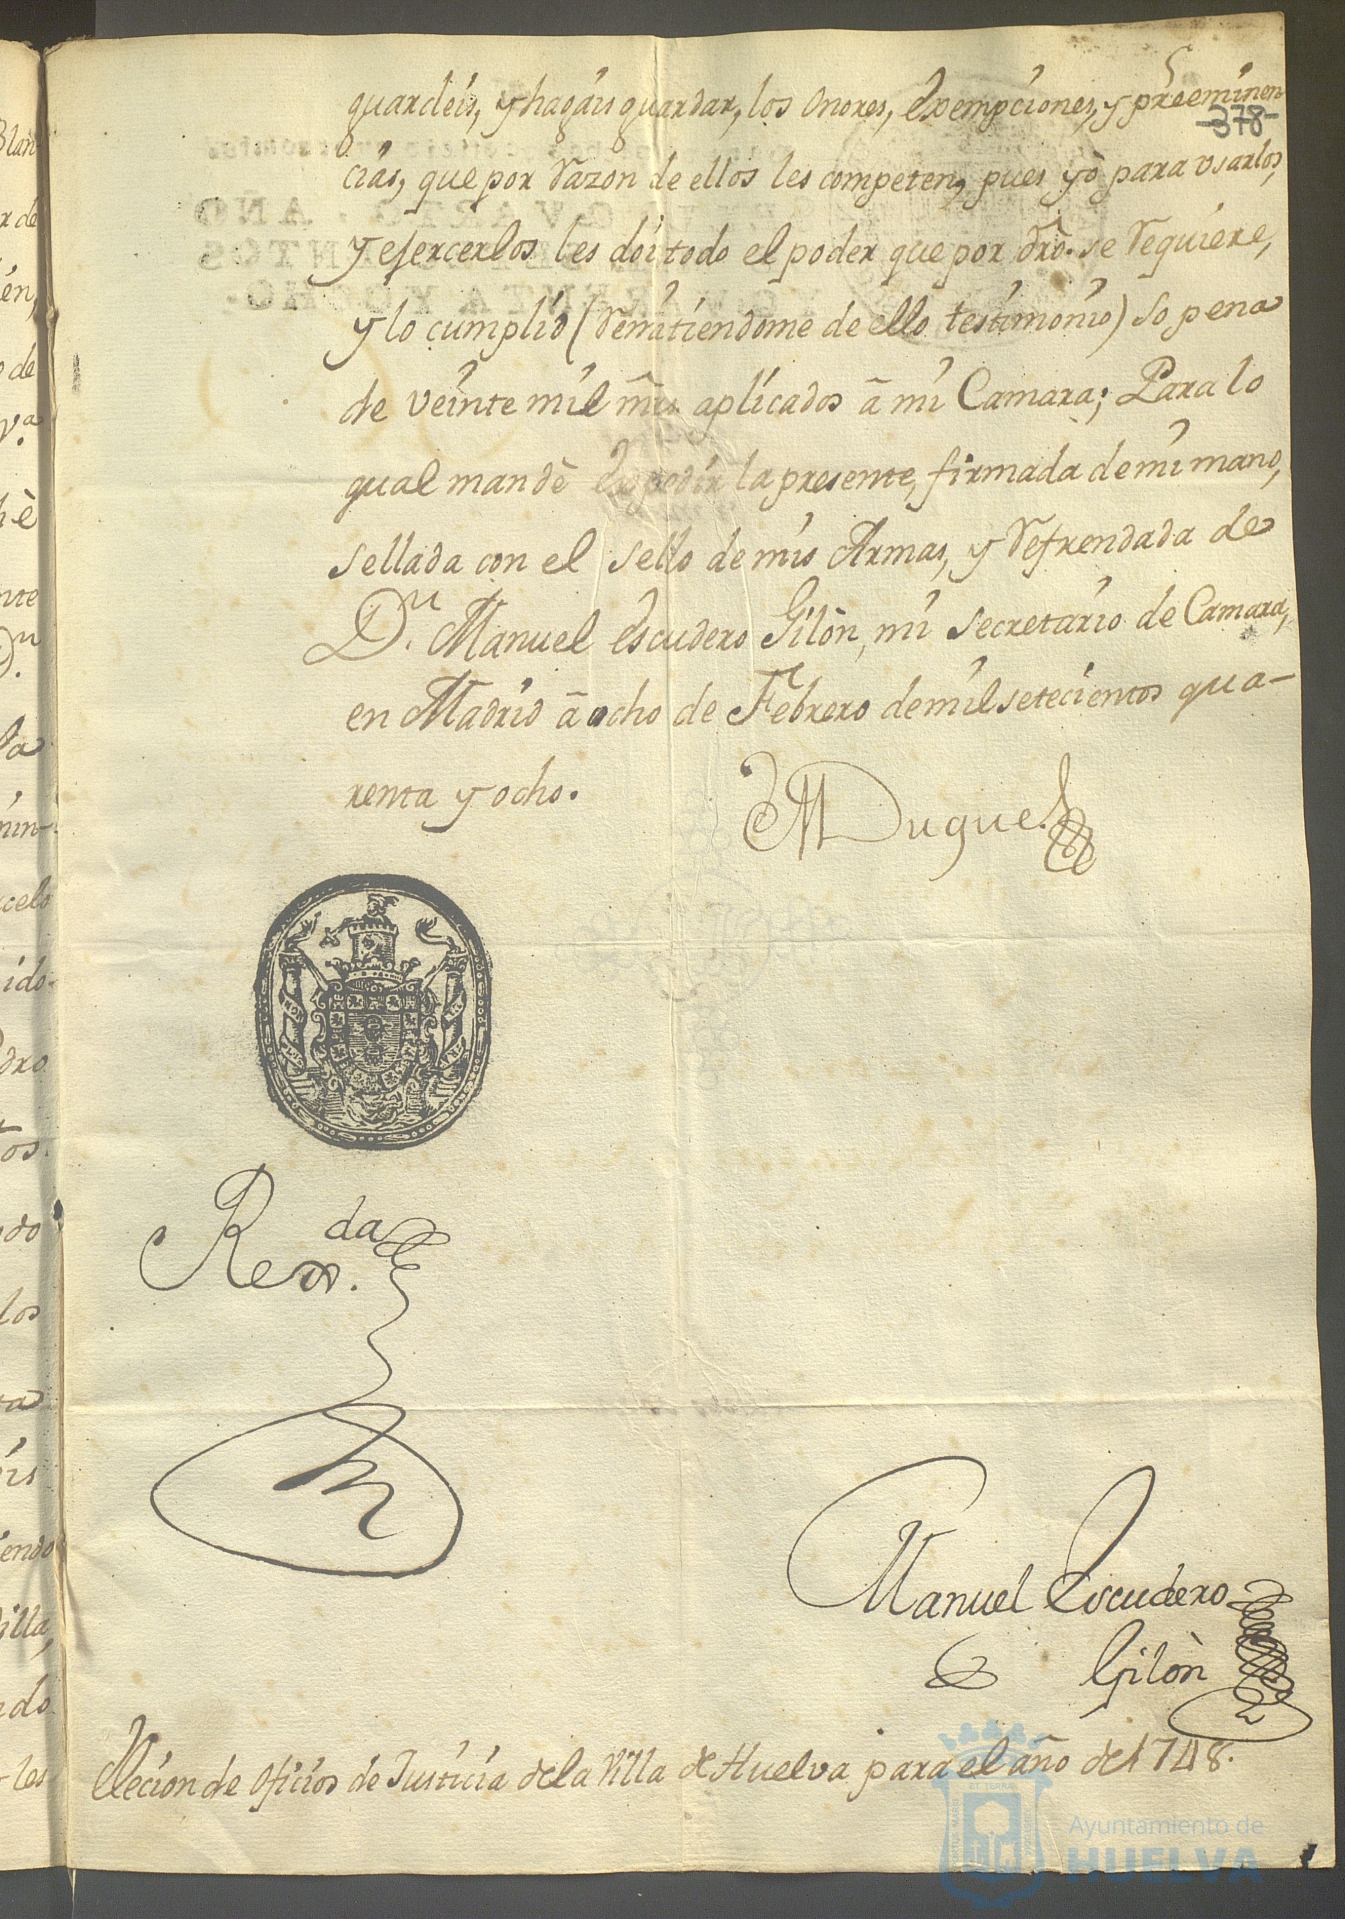 guardeis, y hagais guardar, los onores, exempciones, y preeminen
-378-
cias, que por razon de ellos les competen, pues yò para usarlos,
y ejercerlos les doi todo el poder que por dro. se requiere,
y lo cumplid (remitiendome de ello testimonio) so pena
de veinte mil mrs aplicados â mi Camara; Para lo
qual mandè expedir la presente, firmada de mi mano,
sellada con el sello de mis Armas, y refrendada de
Dn. Manuel Escudero Gilòn, mi secretario de Camara,
en Madrid â ocho de Febrero de mil setecientos qua-
renta y ocho.
El Duque
Rexda.
Manuel Escudero
Gilòn
Eleccion de oficios de Justicia de la Villa de Huelva para el año de 1748.
Ayuntamiento de
HUELVA